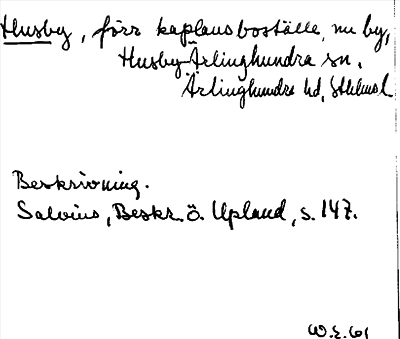 Husby, förr kaplansboställe, nu by,
Husby-Ärlinghundra sn.
Ärlinghundra hd, Sthlmsl.
Beskrivning.
Salvius, Beskr. ö. Upland, s. 147.
W.E. 61